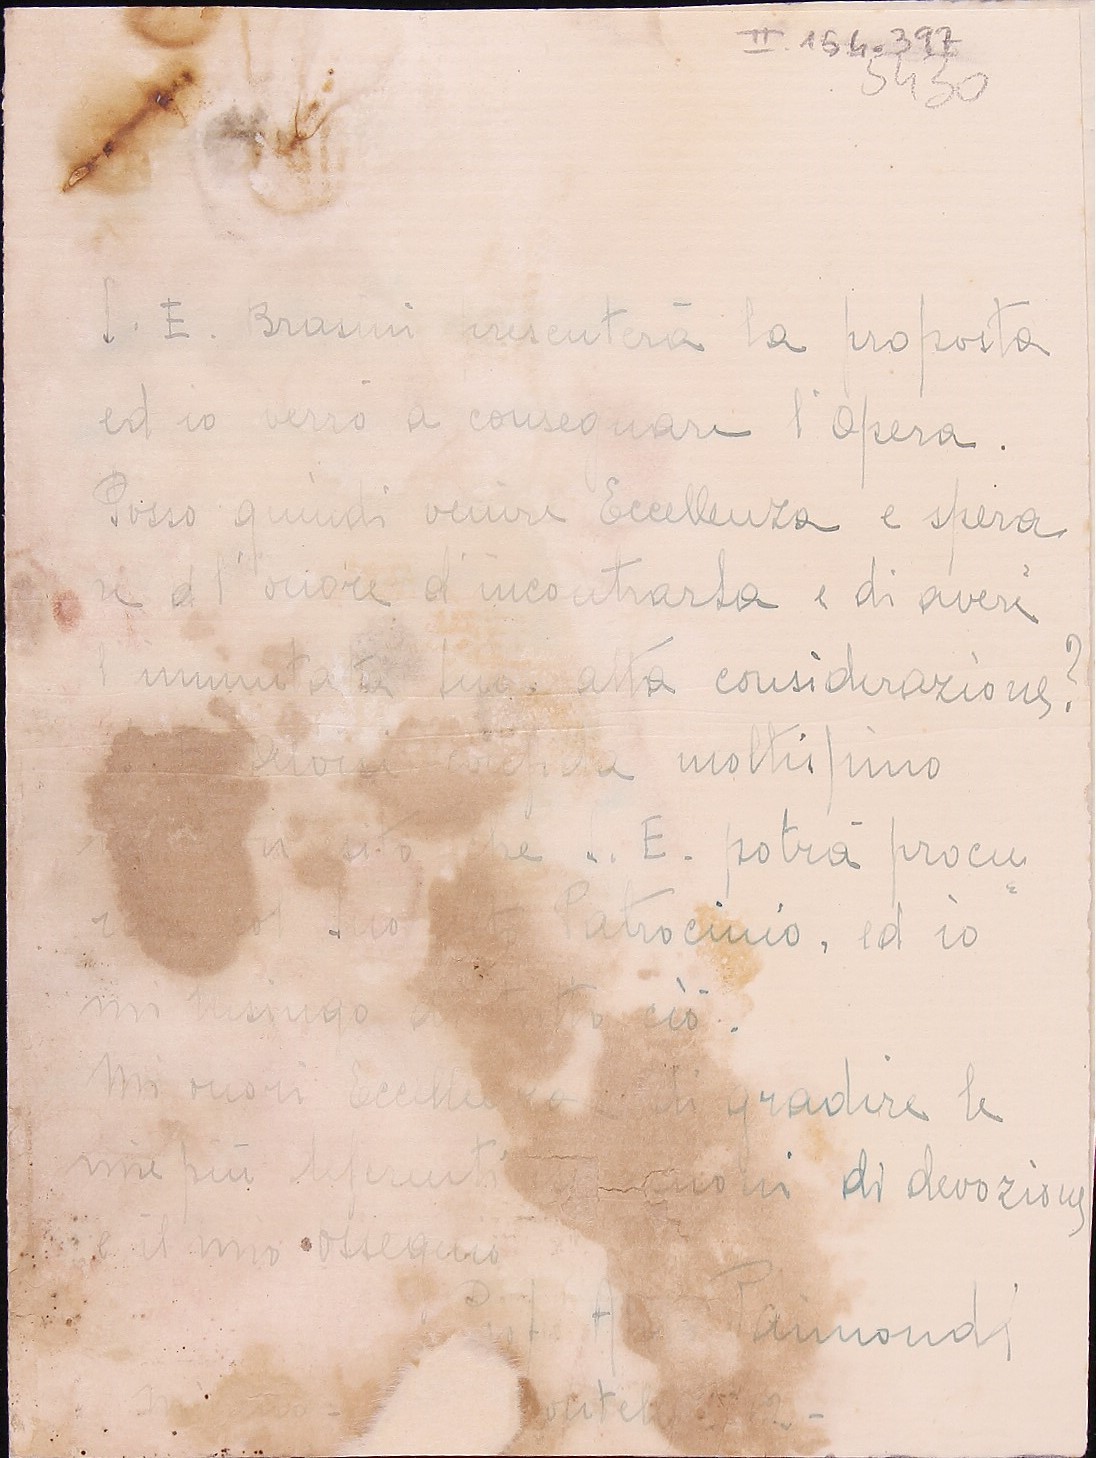 II. 154-397
5430
S. E. Brasini presenterà la proposta
ed io verrò a consegnare l'Opera.
Posso quindi venire Eccellenza e spera
re al l'onore d'incontrarla e di avere
l'immutata Sua alta considerazione?
confida moltissimo
sito che S. E. potrà procu
Suo Patrocinio, ed io
mi lusingo di tutto ciò.
Mi onori Eccellenza di gradire le
mie più deferenti di devozione
e il mio ossequio
Prof. Raimondi